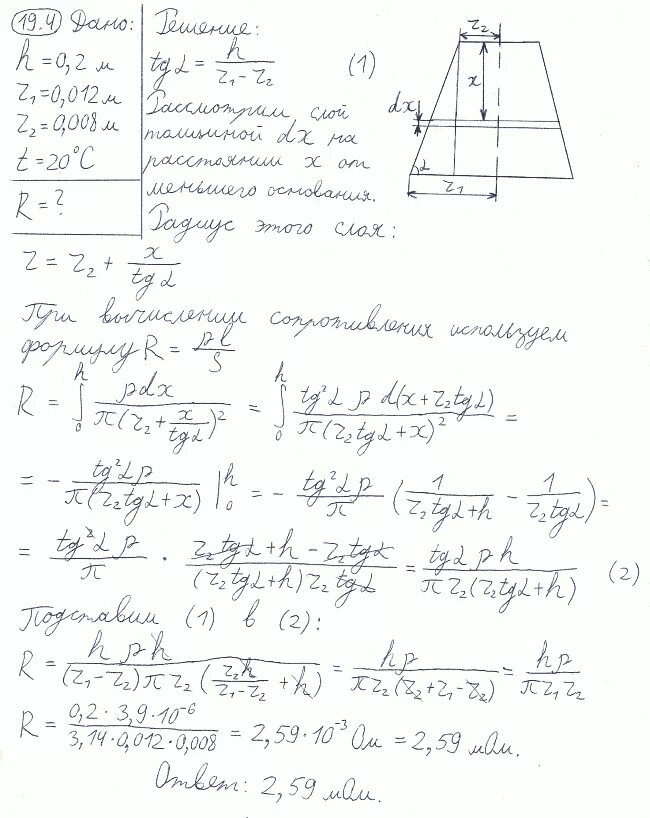 19.4 Дано:
h = 0,2 м
r₁ = 0,012 м
r₂ = 0,008 м
t = 20°C
R = ?
Решение:
tg α = h / (r₁ - r₂) (1)
Рассмотрим слой
толщиной dx на
расстоянии x от
меньшего основания.
Радиус этого слоя:
r₂
x
dx
α
r₁
r = r₂ + x / tg α
При вычислении сопротивления используем
формулу R = ρl / S
R = ∫₀ʰ ρdx / (π(r₂ + x / tg α)²) = ∫₀ʰ tg²α ρ d(x + r₂ tg α) / (π(r₂ tg α + x)²) =
= - tg²α ρ / (π(r₂ tg α + x)) |₀ʰ = - tg²α ρ / π (1 / (r₂ tg α + h) - 1 / (r₂ tg α)) =
= tg²α ρ / π · (r₂ tg α + h - r₂ tg α) / ((r₂ tg α + h) r₂ tg α) = tg α ρ h / (π r₂ (r₂ tg α + h)) (2)
Подставим (1) в (2):
R = h ρ h / ((r₁ - r₂) π r₂ (r₂ h / (r₁ - r₂) + h)) = hρ / (π r₂ (r₂ + r₁ - r₂)) = hρ / (π r₁ r₂)
R = 0,2 · 3,9·10⁻⁶ / (3,14 · 0,012 · 0,008) = 2,59·10⁻³ Ом = 2,59 мОм.
Ответ: 2,59 мОм.